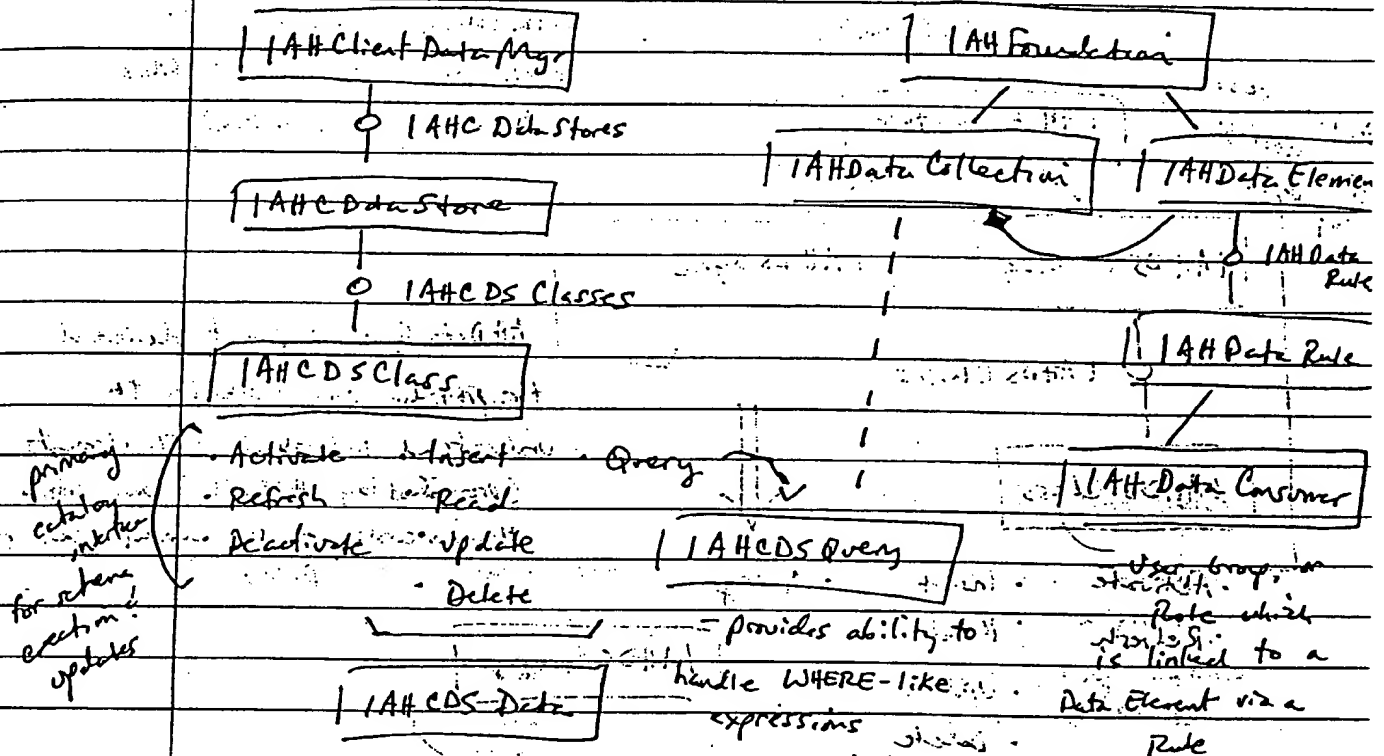 IAHClientDataMgr
IAHC DataStores
IAHCDataStore
IAHCDS Classes
IAHCDSClass
primary
catalog
interface
for schema
creation &
updates
· Activate · Insert · Query
· Refresh · Read
· Deactivate · Update
· Delete
IAHCDS-Data
IAHCDSQuery
- provides ability to
handle WHERE-like
expressions
IAHFoundation
IAHData Collection
IAHData Elemen
IAHData
Rule
IAHData Rule
IAH Data Consumer
- User, Group, or
Role which
is linked to a
Data Element via a
Rule